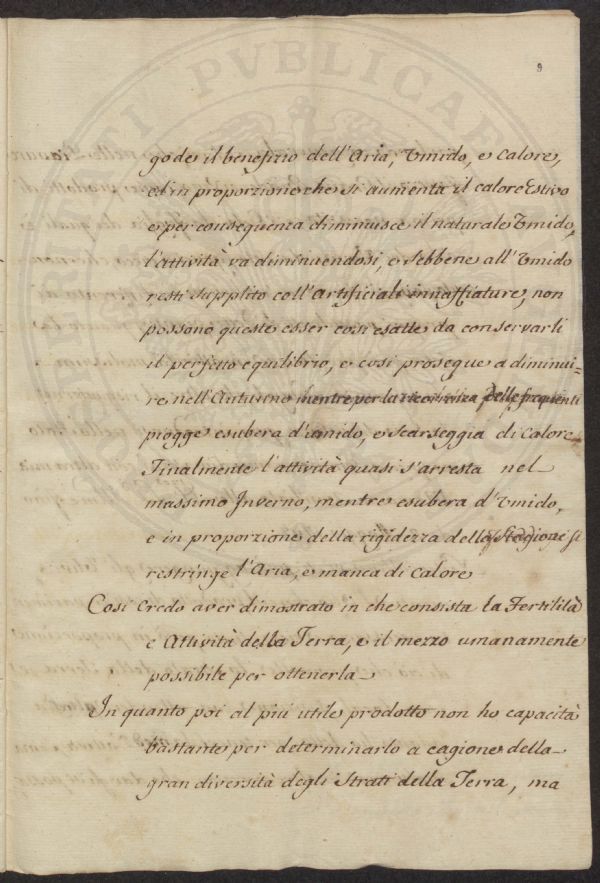 9
gode il benefizio dell'Aria, Umido, e Calore,
ed in proporzione che si aumenta il calore Estivo
e per conseguenza diminuisce il naturale Umido,
l'attività va diminuendosi, e sebbene all'Umido
resti supplito coll'artificiali innaffiature, non
possono queste esser così esatte da conservarli
il perfetto equilibrio, e così prosegue a diminui=
re nell'Autunno mentre per la delle frequenti
piogge esubera d'umido, e scarseggia di calore
Finalmente l'attività quasi s'arresta nel
massimo Inverno, mentre esubera d'Umido,
e in proporzione della rigidezza della Stagione si
restringe l'Aria, e manca di calore
Così Credo aver dimostrato in che consista la Fertilità
e Attività della Terra, e il mezzo umanamente
possibile per ottenerla
In quanto poi al più utile prodotto non ho capacità
bastante per determinarlo a cagione della
gran diversità degli Strati della Terra, ma